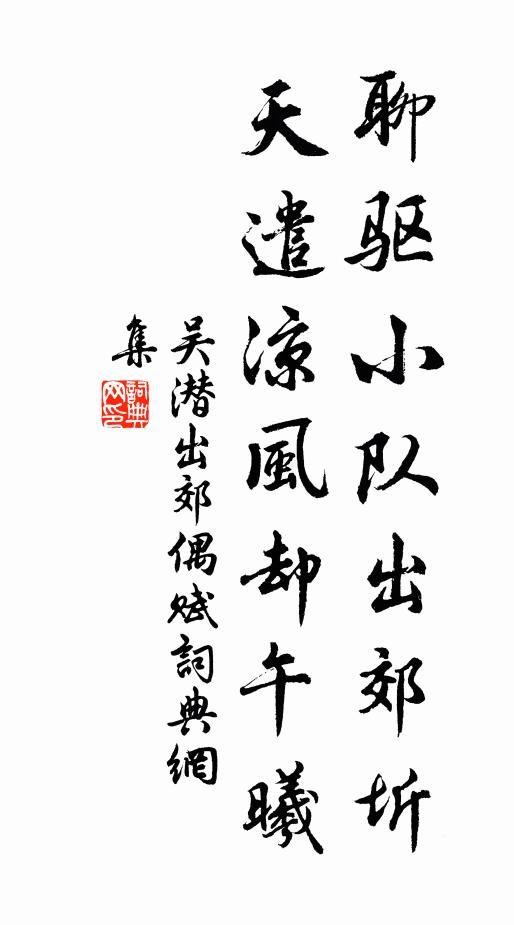 聊驱小队出郊圻
天遣凉風却午曦
吴潜出郊偶赋詞典網
集
詞典網印